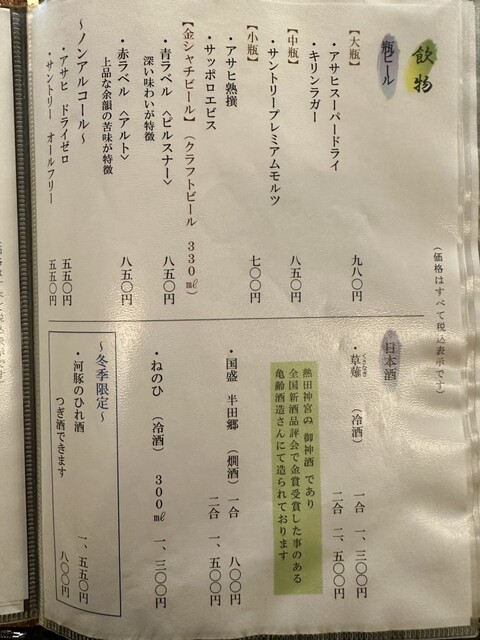 飲物
（価格はすべて税込表示です）
瓶ビール
【大瓶】
・アサヒスーパードライ 九八〇円
・キリンラガー
【中瓶】
・サントリープレミアムモルツ 八五〇円
【小瓶】
・アサヒ熟撰 七〇〇円
・サッポロエビス
【金シャチビール】（クラフトビール 330㎖）
・青ラベル 〈ピルスナー〉 八五〇円
深い味わいが特徴
・赤ラベル 〈アルト〉 八五〇円
上品な余韻の苦味が特徴
～ノンアルコール～
・アサヒ ドライゼロ 五五〇円
・サントリー オールフリー 五五〇円
日本酒
・草薙 （冷酒） 一合 一、三〇〇円
二合 二、五〇〇円
熱田神宮の 御神酒 であり
全国新酒品評会で金賞受賞した事のある
亀齢酒造さんにて造られております
・国盛 半田郷 （燗酒） 一合 八〇〇円
二合 一、五〇〇円
・ねのひ （冷酒） 300㎖ 一、三〇〇円
～冬季限定～
・河豚のひれ酒 一、五五〇円
つぎ酒できます 八〇〇円